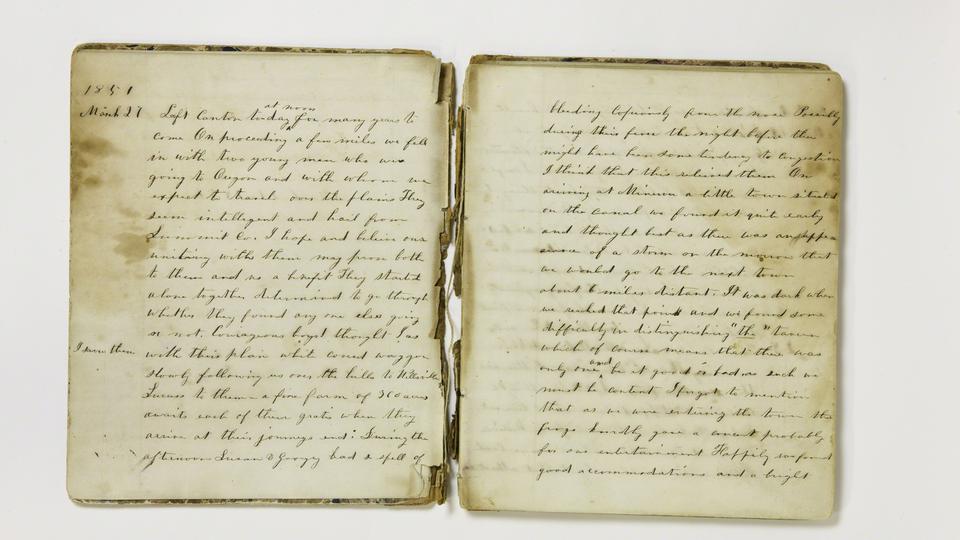 1851
March 27 Left Canton today at noon for many years to
come On proceeding a few miles we fell
in with two young men who were
going to Oregon and with whom we
expect to travel over the plains They
seem intelligent and hail from
Summit Co. I hope and believe our
uniting with them may prove both
to them and us a benefit They started
alone together determined to go through
whether they found any one else going
or not. Courageous boys thought I as
I saw them with their plain white covered waggon
slowly following us over the hills to
Success to them a fine farm of 360 acres
awaits each of them gratis when they
arrive at their journeys end. During the
afternoon Susan & Georgy had a spell of
bleeding copiously from the nose Possibly
during this from the night before there
might have been some tendency to congestion
I think that this relieved them On
arriving at Minerva a little town situated
on the canal we found it quite early
and thought best as there was an appea
rance of a storm on the morrow that
we would go to the next town
about 6 miles distant. It was dark when
we reached that point and we found some
difficulty in distinguishing "the" tavern
which of course means that there was
only one, and be it good or bad we
must be content I forgot to mention
that as we were entering the town the
frogs kindly gave a concert probably
for our entertainment Happily we found
good accommodations and a bright